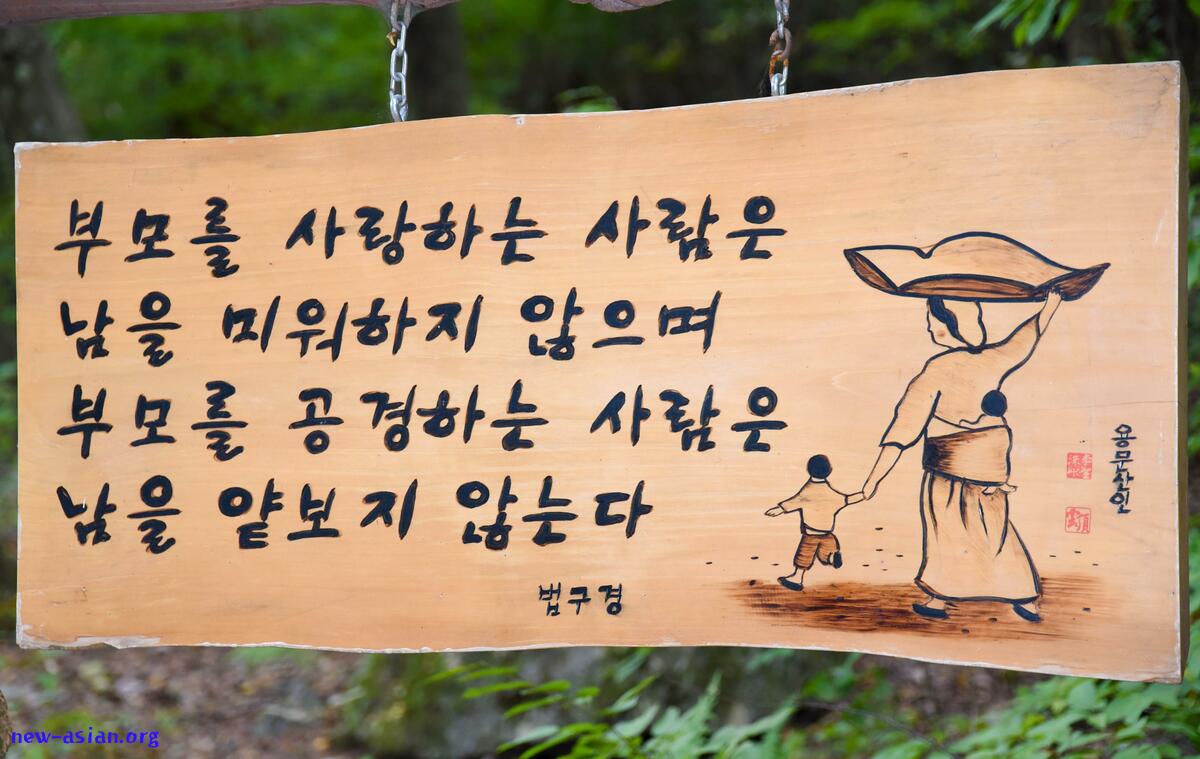 부모를 사랑하는 사람은
남을 미워하지 않으며
부모를 공경하는 사람은
남을 얕보지 않는다
법구경
용문산인
new-asian.org